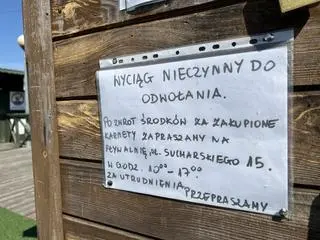 WYCIĄG NIECZYNNY DO
ODWOŁANIA.
PO ZWROT ŚRODKÓW ZA ZAKUPIONE
KARNETY ZAPRASZAMY NA
PŁYWALNIĘ, ul. SUCHARSKIEGO 15.
W GODZ. 10⁰⁰ - 17⁰⁰
ZA UTRUDNIENIA
PRZEPRASZAMY